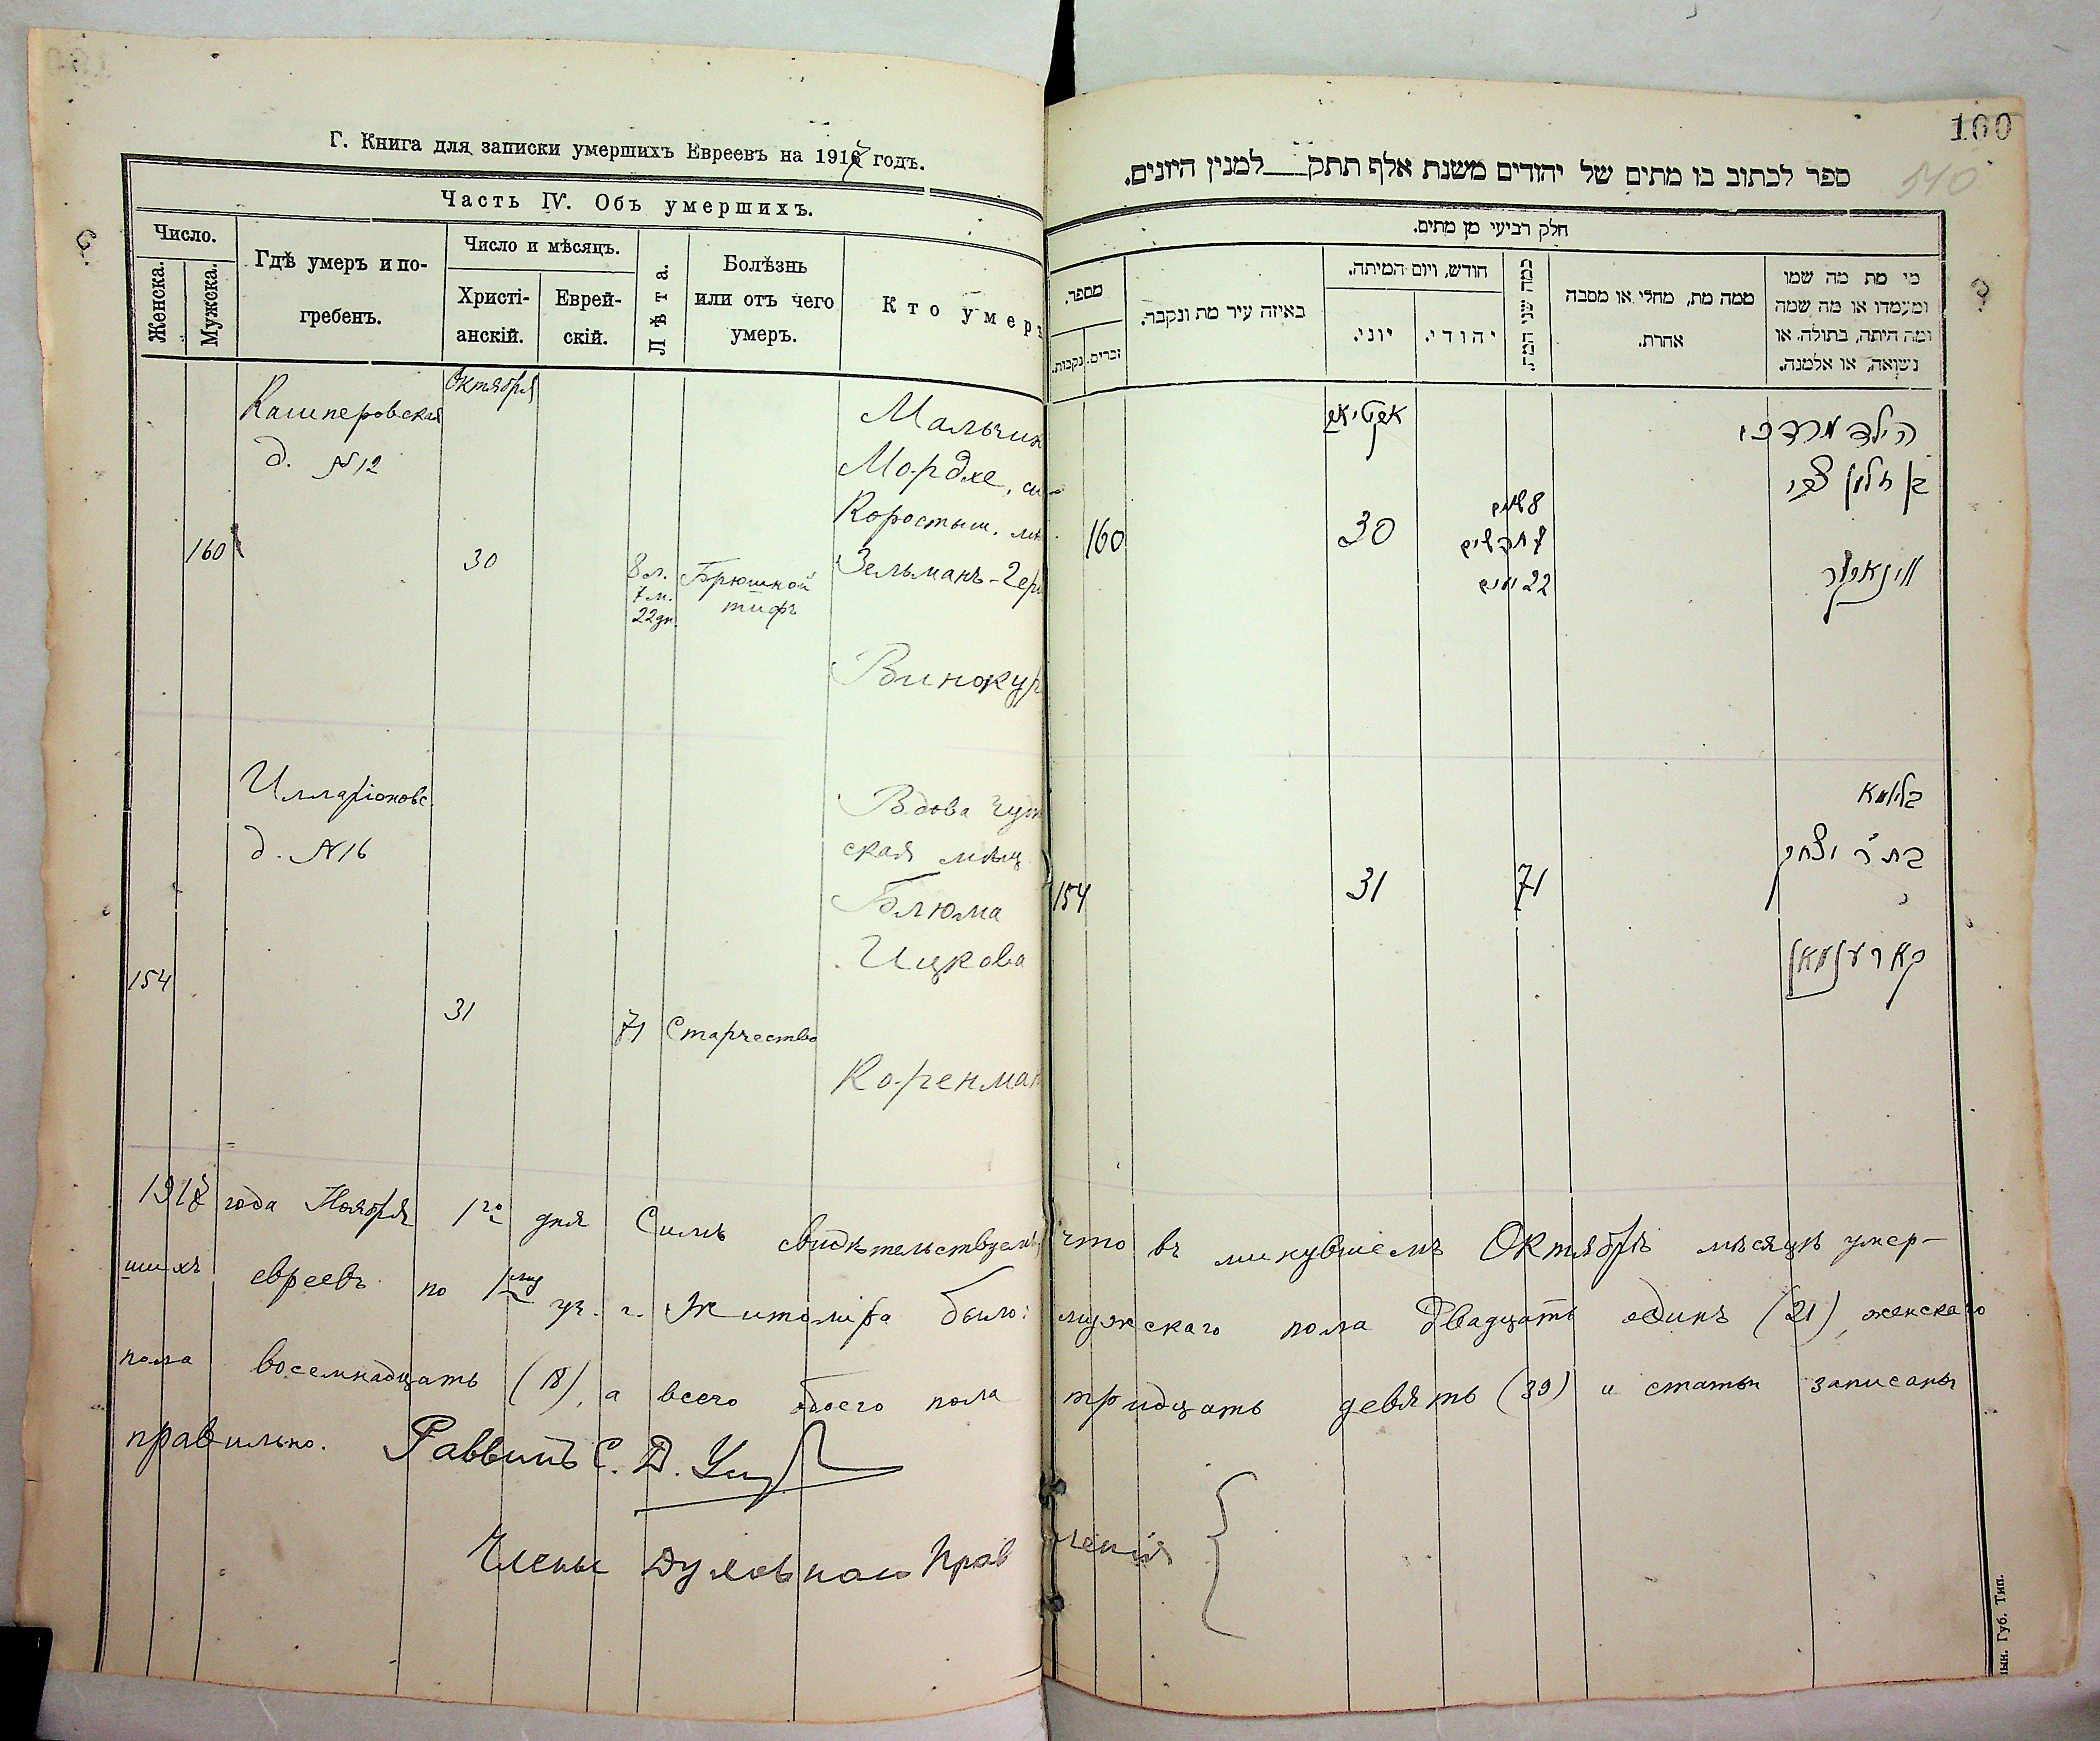 Г. Книга для записки умершихъ Евреевъ на 191 годъ.
Часть IV. Объ умершихъ.
Число.
Женска.
Мужска.
Гдѣ умеръ и по-
гребенъ.
Число и мѣсяцъ.
Христі-
анскій.
Еврей-
скій.
Лѣта.
Болѣзнь
или отъ чего
умеръ.
Кто умеръ
Октября
Кашперовская
д. №12
160
30
8 л.
7 м.
22 дн.
Брюшной
тифъ
Мальчик
Мордхе, сы
Коростыш. мѣ
Зельманъ-Гер
Винокур
Илларіоновс
д. №16
154
31
71
Старчество
Вдова Чудн
ская мѣщ
Блюма
Ицкова
Коренман
100
510
ספר לכתוב בו מתים של יהודים משנת אלף תתק___למנין היונים.
חלק רביעי מן מתים.
מספר.
נקבות.
זכרים.
באיזה עיר מת ונקבר.
חודש, ויום המיתה.
יוני.
יהודי.
כמה שני המת.
ממה מת, מחלי או מסבה
אחרת.
מי מת מה שמו
ומעמדו או מה שמה
ומה היתה, בתולה, או
נשואה, או אלמנה.
160
30
8 שנים
7 חדשים
22 ימים
הילד מרדכי
בן זלמן צבי
ווינאקור
154
31
71
בלומא
בת ר' יצחק
קארענמאן
года Ноября 1го дня Симъ свидѣтельствуемъ, что въ минувшемъ Октябрѣ мѣсяцѣ умер-
шихъ евреевъ по 1му уч. г. Житоміра было: мужскаго пола двадцать одинъ (21), женскаго
пола восемнадцать (18), а всего обоего пола тридцать девять (39) и статьи записаны
правильно. Раввинъ С. Д.
Члены Духовнаго Правленія
ын. Губ. Тип.